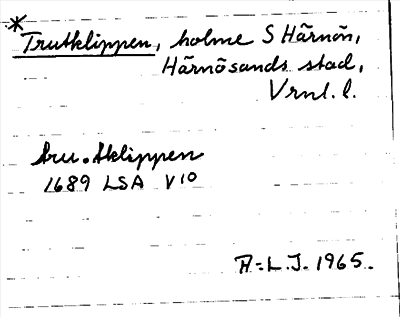 *Trutklippen, holme S Härnön,
Härnösands stad,
Vrnl. l.
tru.tklippen
1689 LSA V10
A-L.J. 1965.